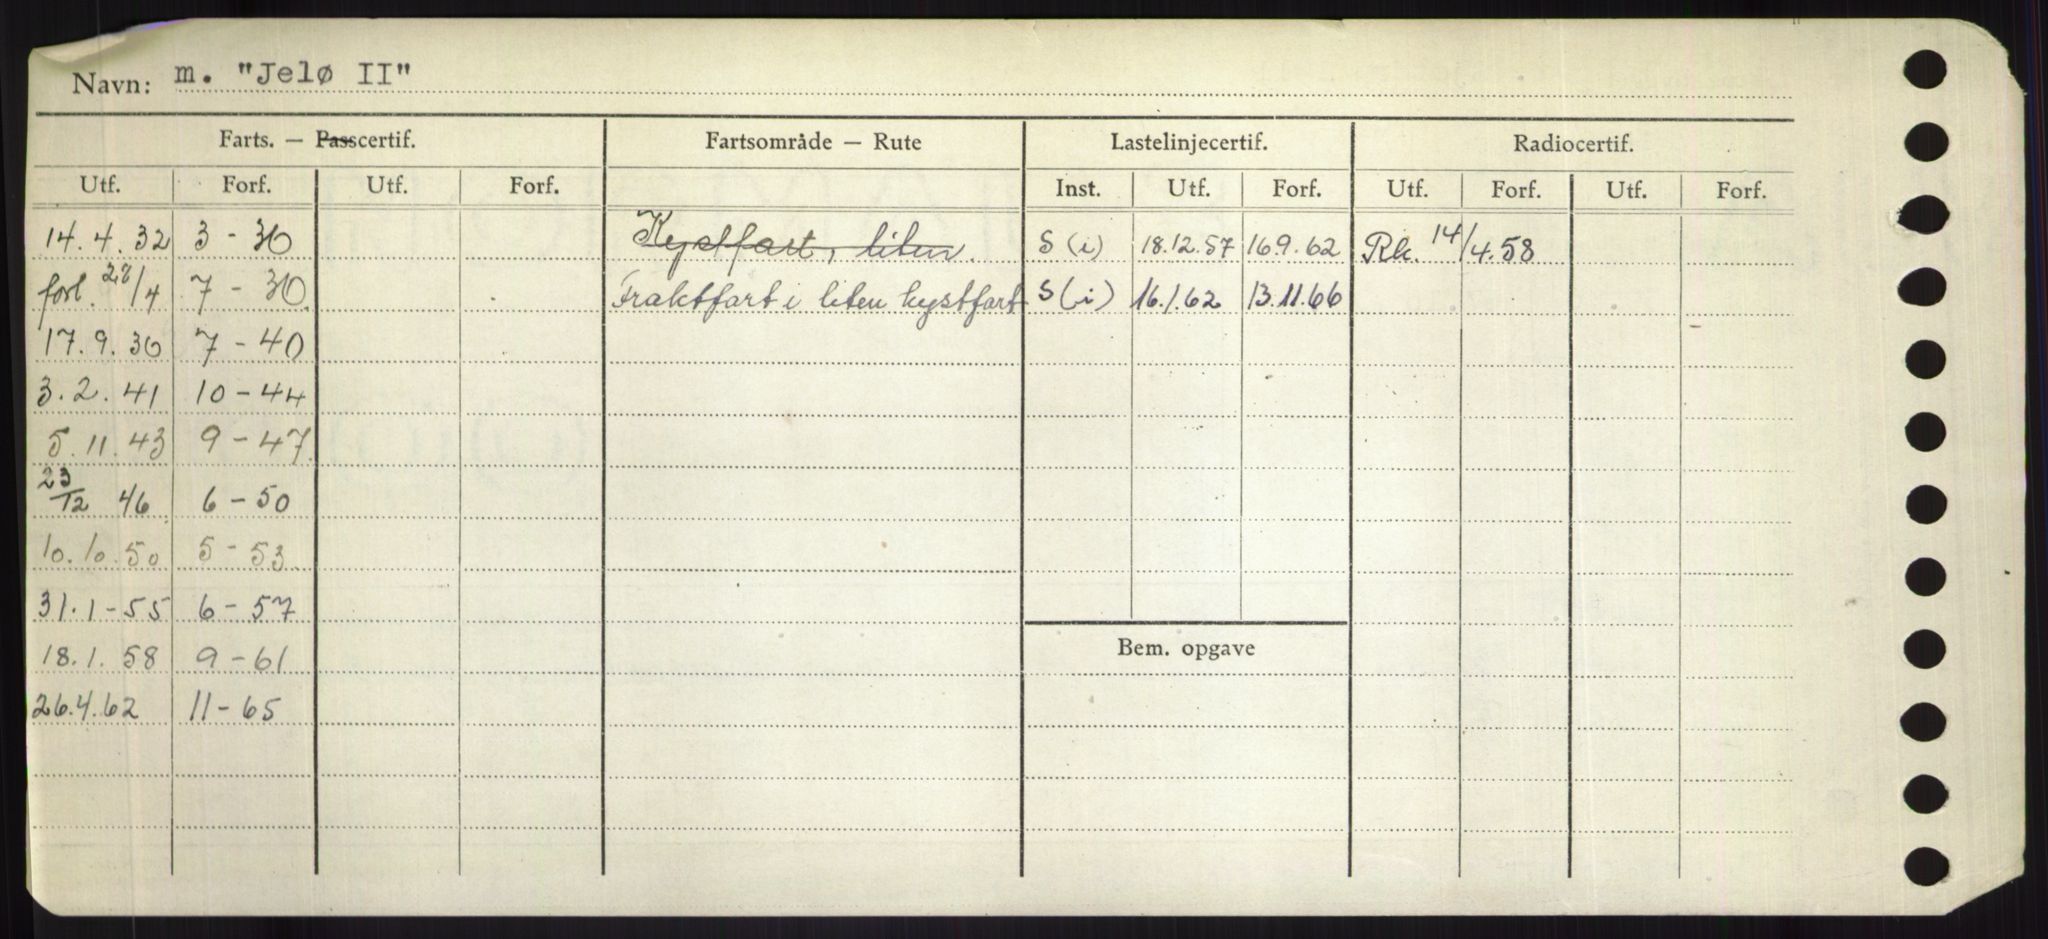 Navn: m. "Jelø II"
Farts. — Passcertif. Fartsområde — Rute Lastelinjecertif. Radiocertif.
Utf. Forf. Utf. Forf. Inst. Utf. Forf. Utf. Forf. Utf. Forf.
14.4.32 3-30 Kystfart, liten. S (i) 18.12.57 16.9.62 Rk. 14/4.58
forl. 28/4 7-30. Fraktfart i liten kystfart S (i) 16.1.62 13.11.66
17.9.30 7-40
3.2.41 10-44
5.11.43 9-47.
23/12 46 6-50
10.10.50 5-53.
31.1-55 6-57
18.1.58 9-61
Bem. opgave
26.4.62 11-65